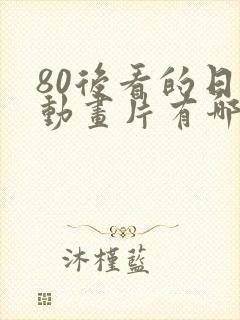 80後看的日
動畫片有哪
沐槿藍